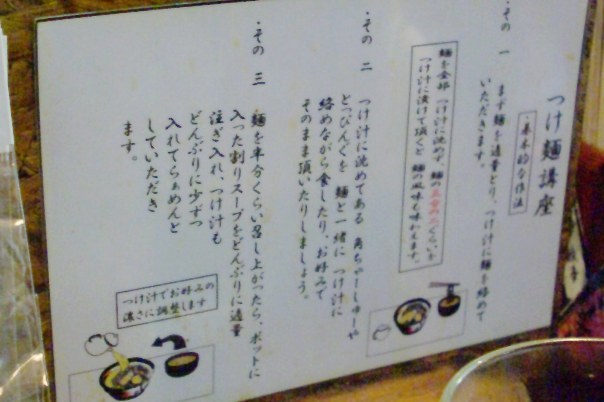 つけ麺講座
・基本的な作法
・その 一
まず麺を適量とり、つけ汁に麺を絡めて
いただきます。
麺を全部 つけ汁に沈めず、麺の三分の二くらいを
つけ汁に漬けて頂くと 麺の風味も味わえます。
・その 二
つけ汁に沈めてある 角ちゃーしゅーや
とっぴんぐを 麺と一緒に つけ汁に
絡めながら食したり、お好みで
そのまま頂いたりしましょう。
・その 三
麺を半分くらい召し上がったら、ポットに
入った割りスープをどんぶりに適量
注ぎ入れ、つけ汁も
どんぶりに少ずつ
入れてらぁめんと
していただき
ます。
つけ汁でお好みの
濃さに調整します